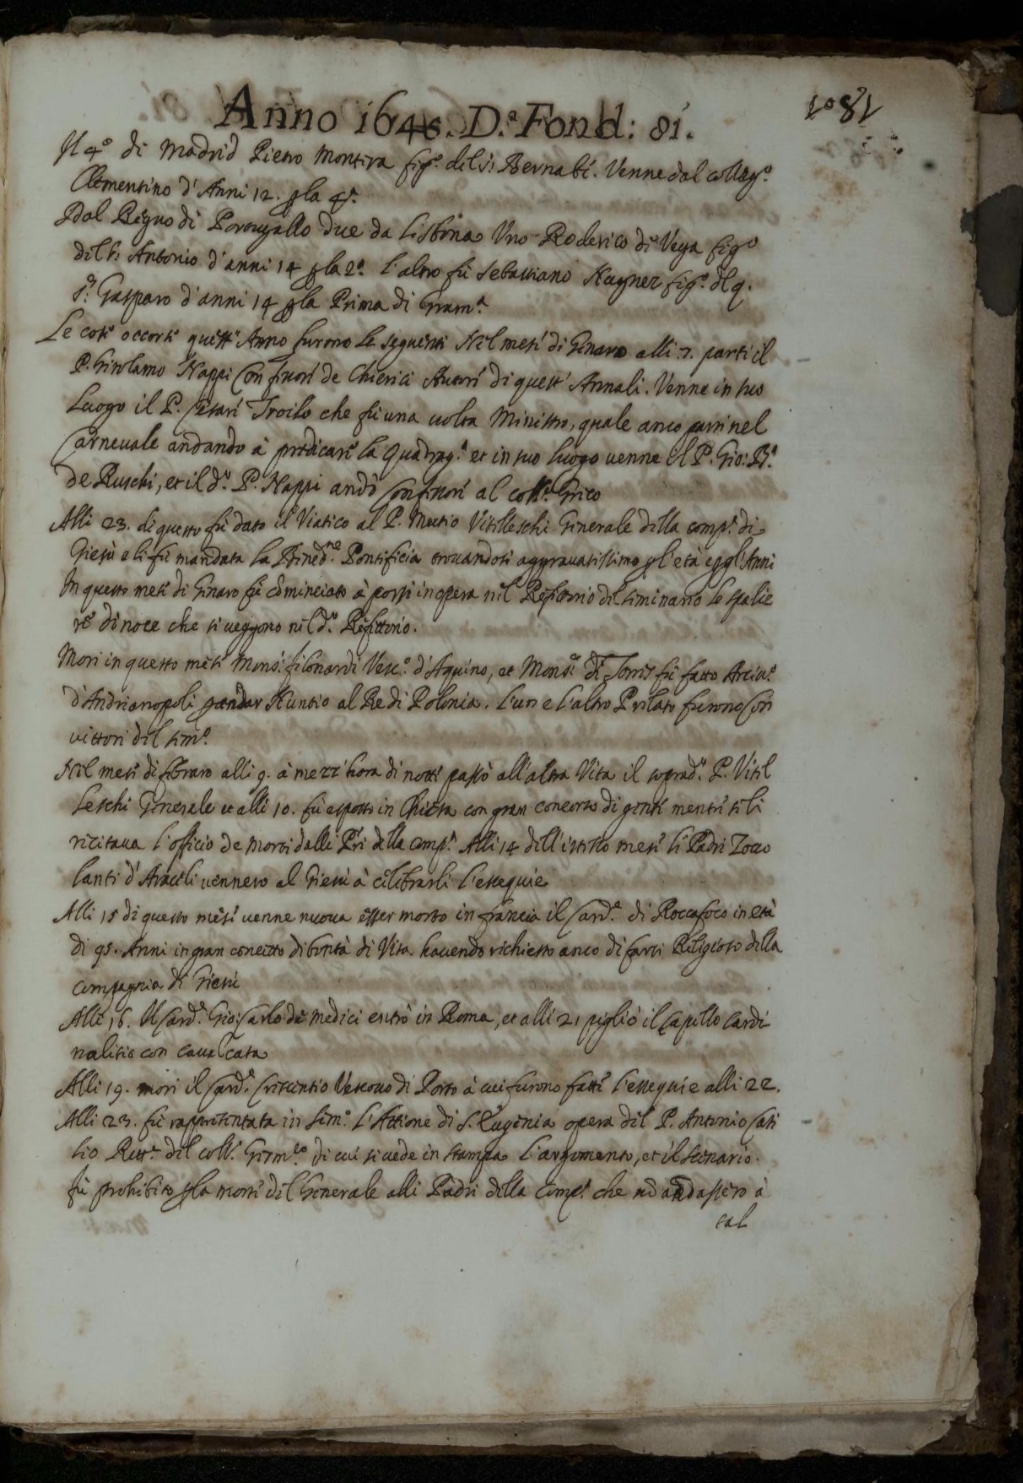 Anno 1646. D.ª Fond: 81.
Il 4º di Madrid Pietro Montira fig.º del S.r Bernabè. Venne dal colleg.º
Clementino d'Anni 12. p la 4ª.
Dal Regno di Portugallo due da Lisbona Uno Roderico di Vega fig.º
del S. Antonio d'anni 14 p la 2ª. L'altro fù Sebastiano Hagner fig.º del q.
S.r Gasparo d'anni 14 p la Prima di Gram.ª
Le cose occorse quest'Anno furono le seguenti Nel mese di Genaro alli 7. parti il
P. Girolamo Nappi Confessore de Chierici Autore di quest'Annali. Venne in suo
luogo il P. Cesare Troilo che fù una volta Ministro, quale anco parti nel
Carnevale andando à predicare la Quadrag.ª et in suo luogo venne il P. Gio: B.ª
de Ruschi, et il d.º P. Nappi andò Confessore al coll.º Greco
Alli 23. di questo fù dato il Viatico al P. Mutio Vitelleschi Generale della comp.ª di
Giesù e li fù mandata la Bened.ne Pontificia trovandosi aggravatissimo p l'età e p gl'Anni
In questo mese di Genaro fù cominciato à porsi in opera nel Refettorio del seminario le spalie
re di noce che si veggono nel d.º Refettorio.
Mori in questo mese Mons.r Filonardi Vesc.º d'Aquino, et Mons.r de Torres fù fatto Arciv.º
d'Andrianopoli p andar Nuntio al Re di Polonia. L'un e l'altro Prelato furono Con
vittori del sem.º
Nel mese di febraro alli 9. à mezz'hora di notte passò all'altra Vita il soprad.º P. Vitel
leschi Generale et alli 10. fù esposto in Chiesa con gran concorso di gente mentre se li
recitava l'officio de morti dalli P.ri della Comp.ª Alli 14 dell'istesso mese li Padri Zocco
lanti d'Araceli vennero al Giesù à celebrarli l'essequie
Alli 15 di questo mese venne nuova esser morto in francia il Card.l di Roccafoco in età
di 95. Anni in gran concetto di bontà di Vita havendo richiesto anco di farsi Religioso della
Compagnia di Giesù
Alli 16. Il Card.l Gio: Carlo de medici entrò in Roma, et alli 21 pigliò il Capello Cardi
nalitio con cavalcata
Alli 19. mori il Card.l Crescentio Vescovo di Porto à cui furono fatte l'essequie alli 22.
Alli 23. fù rappresentata in Sem.º L'Attione di S. Eugenia opera del P. Antonio Casi
lio Rett.e del coll.º Germ.co di cui si vede in stampa l'argomento, et il scenario.
fù prohibito p la morte del Generale alli Padri della Comp.ª che nō andassero à
cal